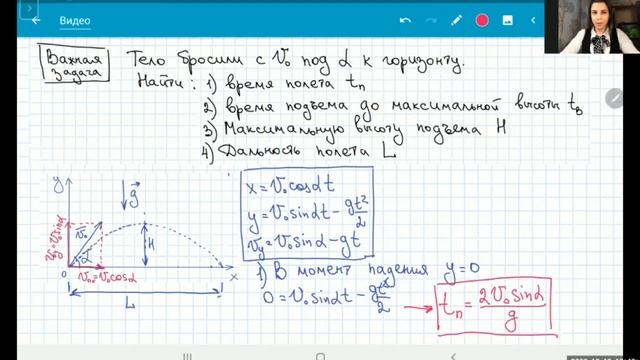 Видео
Важная задача
Тело бросили с V₀ под α к горизонту.
Найти: 1) время полета tп
2) время подъема до максимальной высоты tв
3) Максимальную высоту подъема H
4) Дальность полета L
y
g
V₀y=V₀sinα
V₀
α
H
0
V₀x=V₀cosα
x
L
x=V₀cosαt
y=V₀sinαt-gt²/2
Vy=V₀sinα-gt
1) В момент падения y=0
0=V₀sinαt-gt²/2
→ tп=2V₀sinα/g